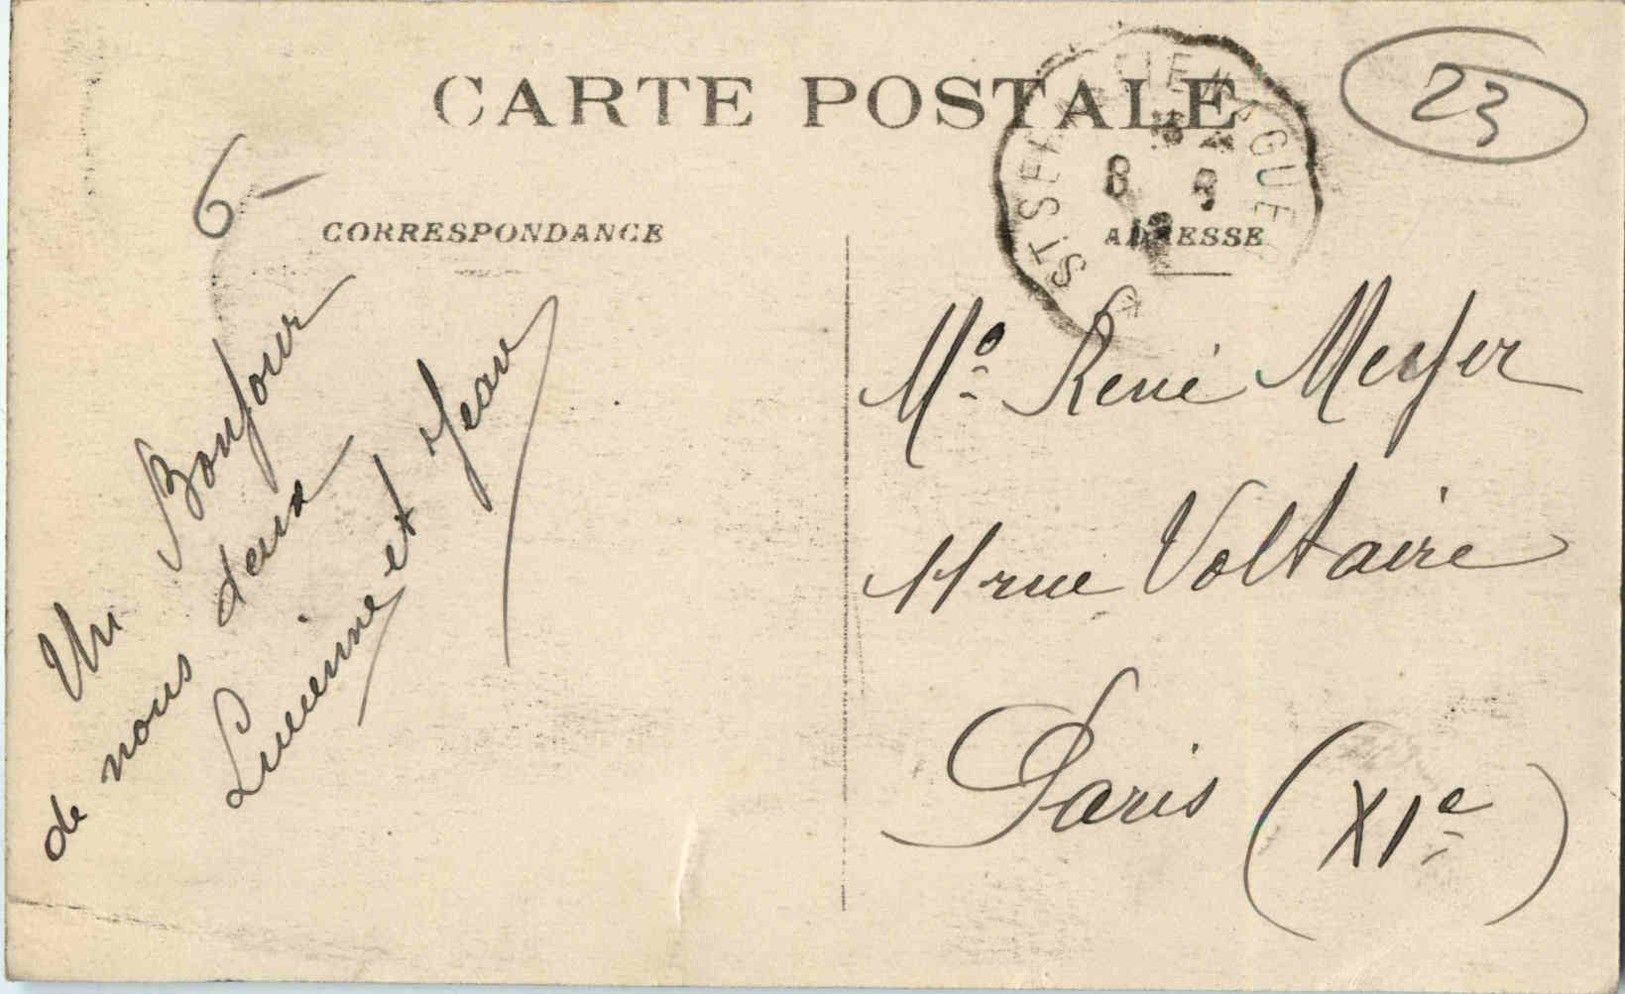 CARTE POSTALE
23
6-
CORRESPONDANCE
ADRESSE
Un Bonjour
de nous deux
Lucienne et Jean
Mr René
11 rue Voltaire
Paris (XIe)